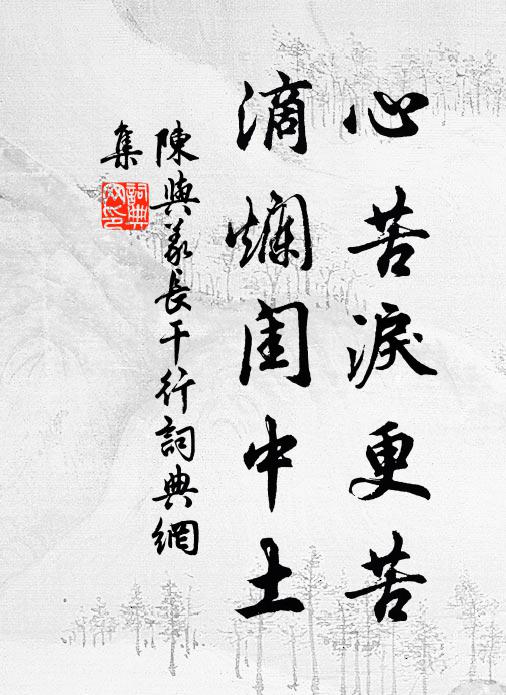 心苦淚更苦
滴爛閨中土
陳與義長干行詞典網
集